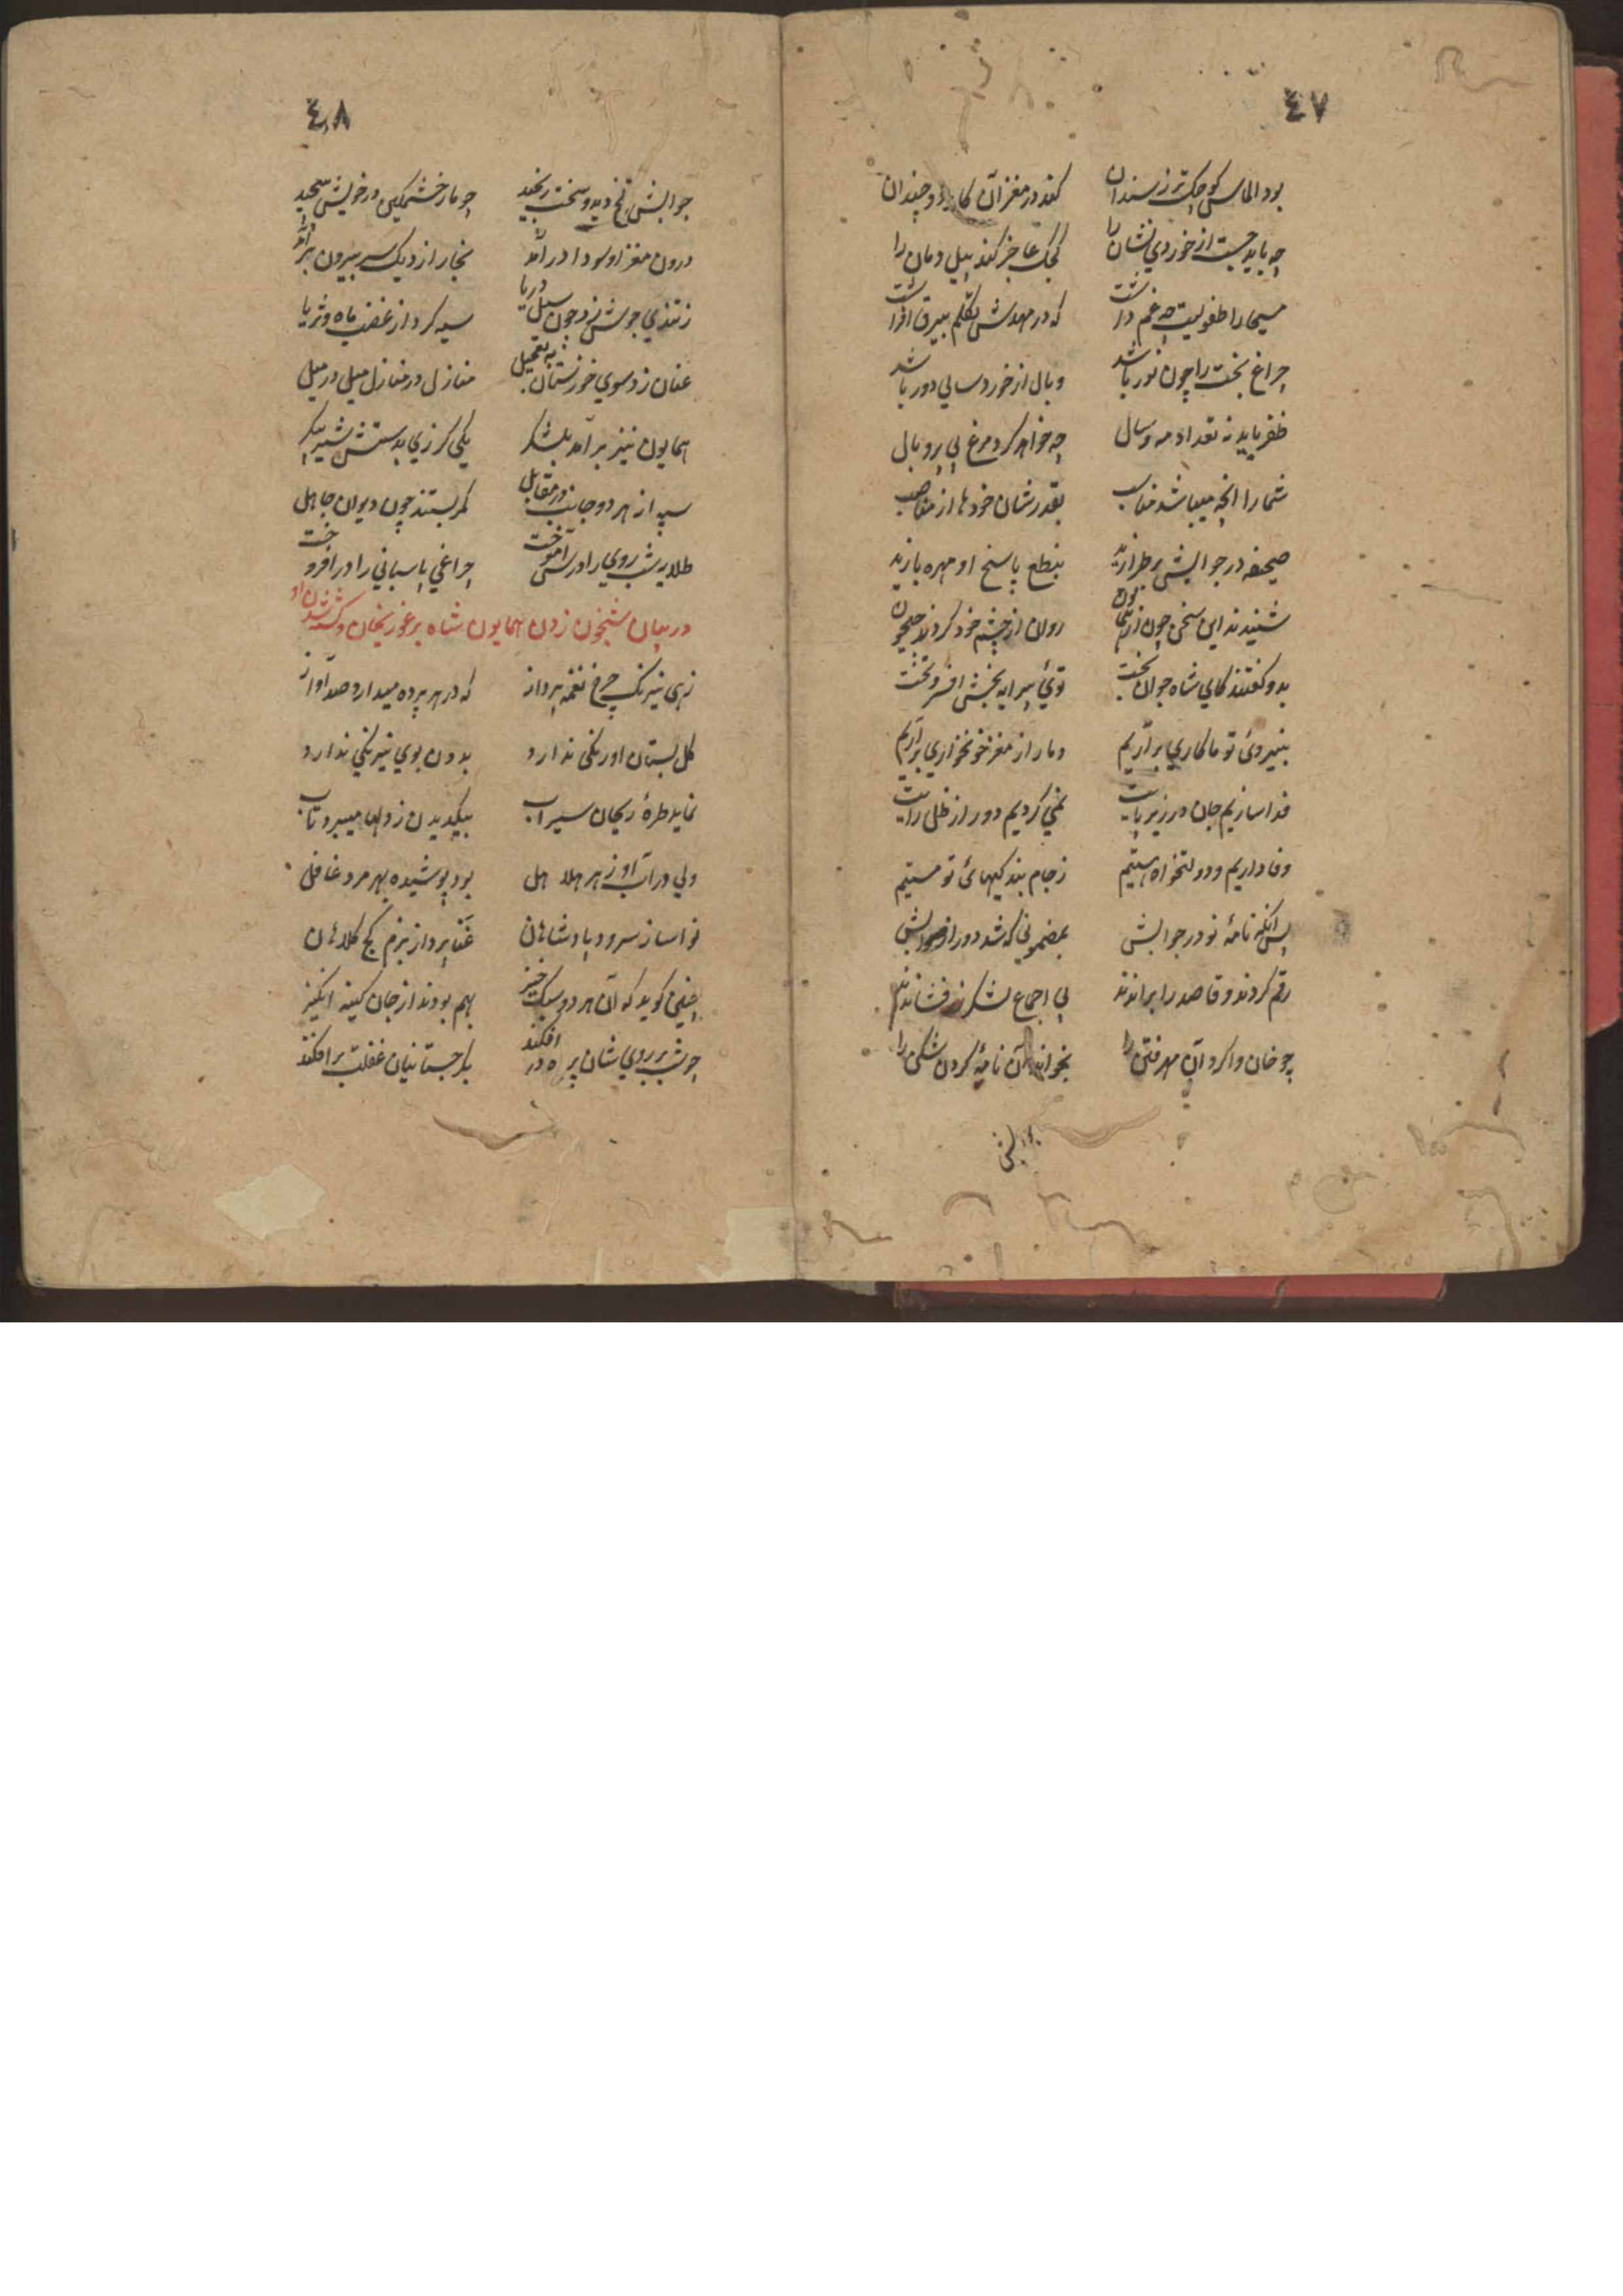 ٤٧
بود الماس کوچک تر ز سندان کند در مغز آن کار دو چندان
چه باید جست از خوردی نشان را کجک عاجز کند پیل دمان را
مسیحا را طفولیت چه غم داشت که در مهدش تکلم بیرق افراشت
چراغ بخت را چون نور باشد وبال از خوردسالی دور باشد
ظفر باید نه تعداد مه و سال چه خواهد کرد مرغ بی پر و بال
شما را انچه میباشد مناسب بقدر شان خودها از مناصب
صحیفه در جوابش بر طرازید بنطع پاسخ او مهره بازید
شنیدند این سخن چون از روان از چشم خود کردند جیحون
بدو گفتند کای شاه جوان بخت توئی پیرایه بخش افسر و تخت
بنیروئ تو ما کاری برآریم دمار از مغز خونخواری برآریم
فدا سازیم جان در زیر پایت نمی گردیم دور از ظل رایت
وفا داریم و دولتخواه هستیم ز جام بندکیهائ تو مستیم
پس انکه نامۀ نو در جوابش بمضمونی که شد دور از صوابش
رقم کردند و قاصد را براندند پی اجماع لشکر زر فشاندند
چو خان وا کرد آن مهر فتن را بخواند آن نامۀ گردن شکن را
جوابش
٤٨
جوابش تلخ دید و سخت رنجید چو مار خشمگین در خویش پیچید
درون مغز او سودا در آمد بخار از دیک سر بیرون بر آمد
ز تندی جوش زد چون سیل دریا سیه کرد از غضب ماه و ثریا
عنان زد سوی خوزستان به تعجیل منازل در منازل میل در میل
همایون نیز بر آمد بلشکر یکی گرزی بدستش شیر پیکر
سپه از هر دو جانب در مقابل کمر بستند چون دیوان جاهل
طلایه شب روی را درس آموخت چراغی پاسبانی را در افروخت
در بیان شبخون زدن همایون شاه بر غوریخان و کشته شدن او
زهی نیرنک چرخ نغمه پرداز که در هر پرده میدارد صد آواز
گل بستان او رنگی ندارد بدون بوی نیرنگی ندارد
نماید طرۀ ریحان سیراب بیکدیدن ز دلها میبرد تاب
ولی در آب او زهر هلاهل بود پوشیده بهر مرد غافل
نوا ساز سرود پادشاهان غنا پرداز بزم کج کلاهان
چنین گوید که آن هر دو سبک خیز بهم بودند از جان کینه انگیز
چو شب بر روی شان پرده در افکند بکرجستانیان غفلت بر افکند